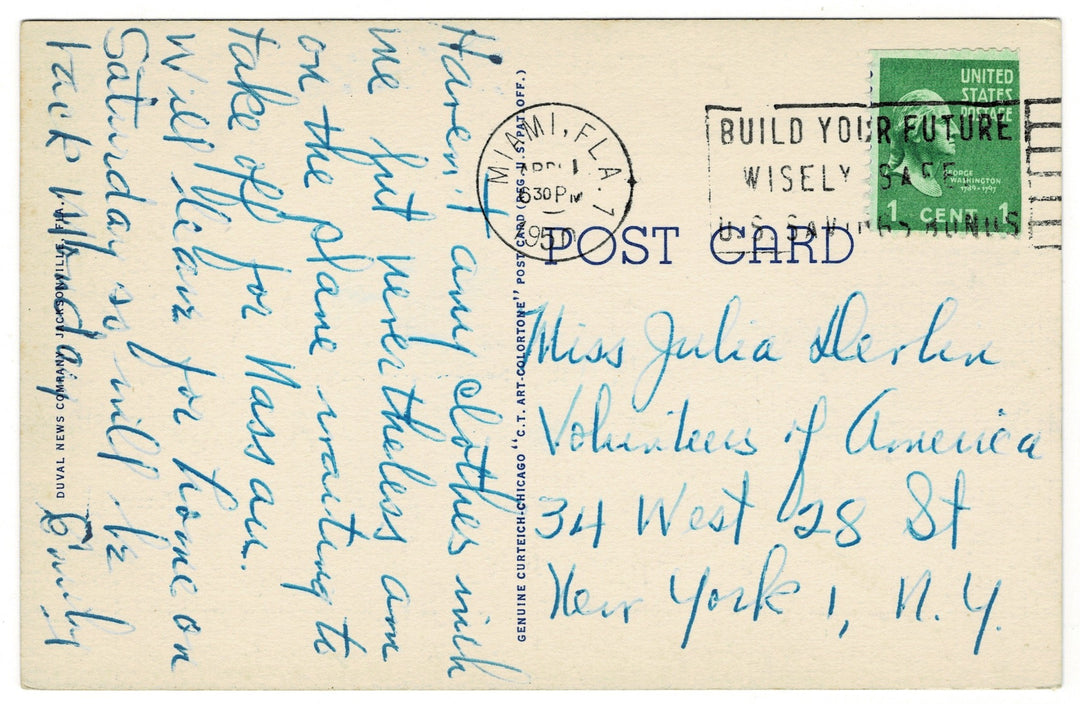 Haven't any clothes with
me but nevertheless am
on the plane waiting to
take off for Nassau.
Will steam for home on
Saturday so will be
back Monday.
Emily
DUVAL NEWS COMPANY, JACKSONVILLE, FLA.
GENUINE CURTEICH-CHICAGO "C.T. ART-COLORTONE" POST CARD (REG. U.S. PAT. OFF.)
MIAMI, FLA. 7
APR 1
630 PM
195
BUILD YOUR FUTURE
WISELY SAFE
U.S. SAVINGS BONDS
UNITED
STATES
POSTAGE
GEORGE
WASHINGTON
1789-1797
1 CENT 1
POST CARD
Miss Julia
Volunteers of America
34 West 28 St
New York 1, N.Y.